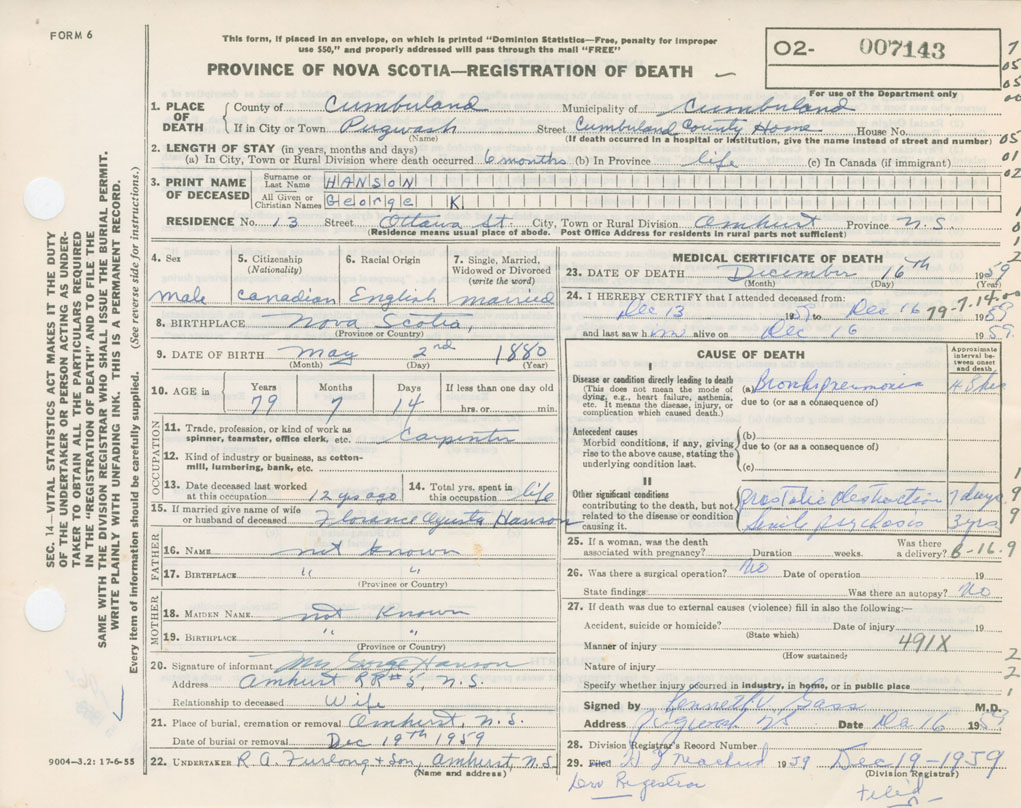 FORM 6
This form, if placed in an envelope, on which is printed "Dominion Statistics—Free, penalty for improper
use $50," and properly addressed will pass through the mail "FREE"
PROVINCE OF NOVA SCOTIA—REGISTRATION OF DEATH
02- 007143
For use of the Department only
1. PLACE OF DEATH County of Cumberland Municipality of Cumberland
If in City or Town Pugwash Street Cumberland County Home House No.
(Name) (If death occurred in a hospital or institution, give the name instead of street and number)
2. LENGTH OF STAY (in years, months and days)
(a) In City, Town or Rural Division where death occurred 6 months (b) In Province life (c) In Canada (if immigrant)
3. PRINT NAME OF DECEASED Surname or Last Name HANSON
All Given or Christian Names George K
RESIDENCE No. 13 Street Ottawa St. City, Town or Rural Division Amherst Province N.S.
(Residence means usual place of abode. Post Office Address for residents in rural parts not sufficient)
4. Sex 5. Citizenship (Nationality) 6. Racial Origin 7. Single, Married, Widowed or Divorced (write the word)
male Canadian English married
8. BIRTHPLACE Nova Scotia,
(Province or Country)
9. DATE OF BIRTH May 2nd 1880
(Month) (Day) (Year)
10. AGE in Years Months Days If less than one day old
79 7 14 hrs. or min.
OCCUPATION
11. Trade, profession, or kind of work as spinner, teamster, office clerk, etc. Carpenter
12. Kind of industry or business, as cotton-mill, lumbering, bank, etc.
13. Date deceased last worked at this occupation 12 yrs ago 14. Total yrs. spent in this occupation life
15. If married give name of wife or husband of deceased Florence Hanson
FATHER
16. NAME not known
17. BIRTHPLACE " "
(Province or Country)
MOTHER
18. MAIDEN NAME not known
19. BIRTHPLACE " "
(Province or Country)
20. Signature of informant Mrs George Hanson
Address Amherst RR#5, N.S.
Relationship to deceased Wife
21. Place of burial, cremation or removal Amherst, N.S.
Date of burial or removal Dec 19th 1959
22. UNDERTAKER R. A. Furlong + Son, Amherst N.S.
(Name and address)
MEDICAL CERTIFICATE OF DEATH
23. DATE OF DEATH December 16th 1959
(Month) (Day) (Year)
24. I HEREBY CERTIFY that I attended deceased from:
Dec 13 1959 to Dec 16 1959
79-7-14
and last saw him alive on Dec 16 1959.
CAUSE OF DEATH
Approximate interval between onset and death
I
Disease or condition directly leading to death (a) Bronchopneumonia 48 hrs
(This does not mean the mode of dying, e.g., heart failure, asthenia, etc. It means the disease, injury, or complication which caused death.) due to (or as a consequence of)
Antecedent causes (b)
Morbid conditions, if any, giving rise to the above cause, stating the underlying condition last. due to (or as a consequence of)
(c)
II
Other significant conditions contributing to the death, but not related to the disease or condition causing it. Prostatic obstruction 7 days
Senile psychosis 3 yrs
25. If a woman, was the death associated with pregnancy? Duration weeks. Was there a delivery?
26. Was there a surgical operation? No Date of operation 19
State findings Was there an autopsy? No
27. If death was due to external causes (violence) fill in also the following:—
Accident, suicide or homicide? Date of injury 19
(State which)
Manner of injury 491X
(How sustained)
Nature of injury
Specify whether injury occurred in industry, in home, or in public place
Signed by Kenneth V Gass M.D.
Address Pugwash NS Date Dec 16 1959
28. Division Registrar's Record Number
29. Filed 1959 Dec 19-1959
(Division Registrar)
Div Registrar Filed
9004—3.2: 17-6-55
SEC. 14—VITAL STATISTICS ACT MAKES IT THE DUTY
OF THE UNDERTAKER OR PERSON ACTING AS UNDER-
TAKER TO OBTAIN ALL THE PARTICULARS REQUIRED
IN THE "REGISTRATION OF DEATH" AND TO FILE THE
SAME WITH THE DIVISION REGISTRAR WHO SHALL ISSUE THE BURIAL PERMIT.
WRITE PLAINLY WITH UNFADING INK. THIS IS A PERMANENT RECORD.
Every item of information should be carefully supplied. (See reverse side for instructions.)